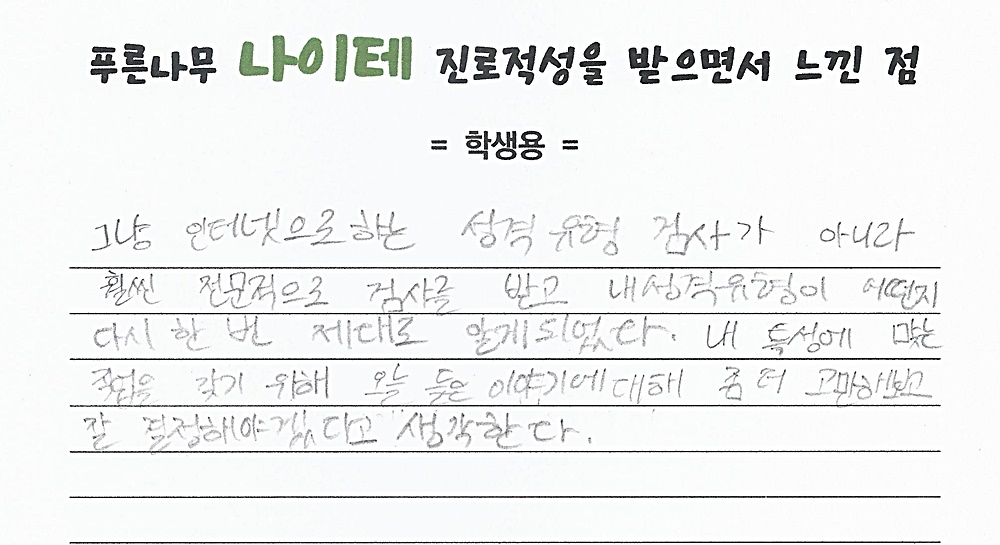 푸른나무 나이테 진로적성을 받으면서 느낀 점
= 학생용 =
그냥 인터넷으로 하는 성격 유형 검사가 아니라
훨씬 전문적으로 검사를 받고 내 성격 유형이 어떤지
다시 한 번 제대로 알게 되었다. 내 특성에 맞는
직업을 갖기 위해 오늘 들은 이야기에 대해 좀 더 고민해보고
잘 결정해야겠다고 생각한다.